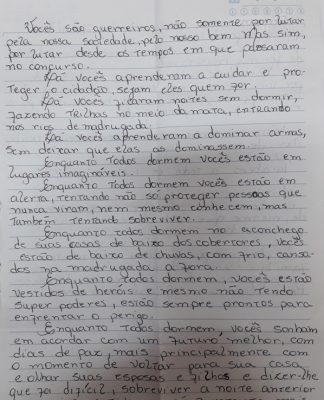 Vocês são guerreiros, não somente por lutar
pela nossa sociedade, pelo nosso bem mas sim,
por lutar desde os tempos em que passaram
no concurso.
Lá vocês aprenderam a cuidar e pro-
teger o cidadão, sejam eles quem for.
Lá vocês ficaram noites sem dormir,
fazendo trilhas no meio da mata, entrando
nos rios de madrugada.
Lá vocês aprenderam a dominar armas,
sem deixar que elas as dominassem.
Enquanto todos dormem vocês estão em
lugares imagináveis.
Enquanto todos dormem vocês estão em
alerta, tentando não só proteger pessoas que
nunca viram, nem mesmo conhecem, mas
também tentando sobreviver.
Enquanto todos dormem no aconchego
de suas casas de baixo dos cobertores, vocês
estão de baixo de chuvas, com frio, cansa-
dos na madrugada a fora.
Enquanto todos dormem, vocês estão
vestidos de heróis e mesmo não tendo
super poderes, estão sempre prontos para
enfrentar o perigo.
Enquanto todos dormem, vocês sonham
em acordar com um futuro melhor, com
dias de paz, mais principalmente com
o momento de voltar para sua casa,
e olhar, suas esposas e filhos e dizer-lhe
que foi difícil, sobreviver a noite anterior